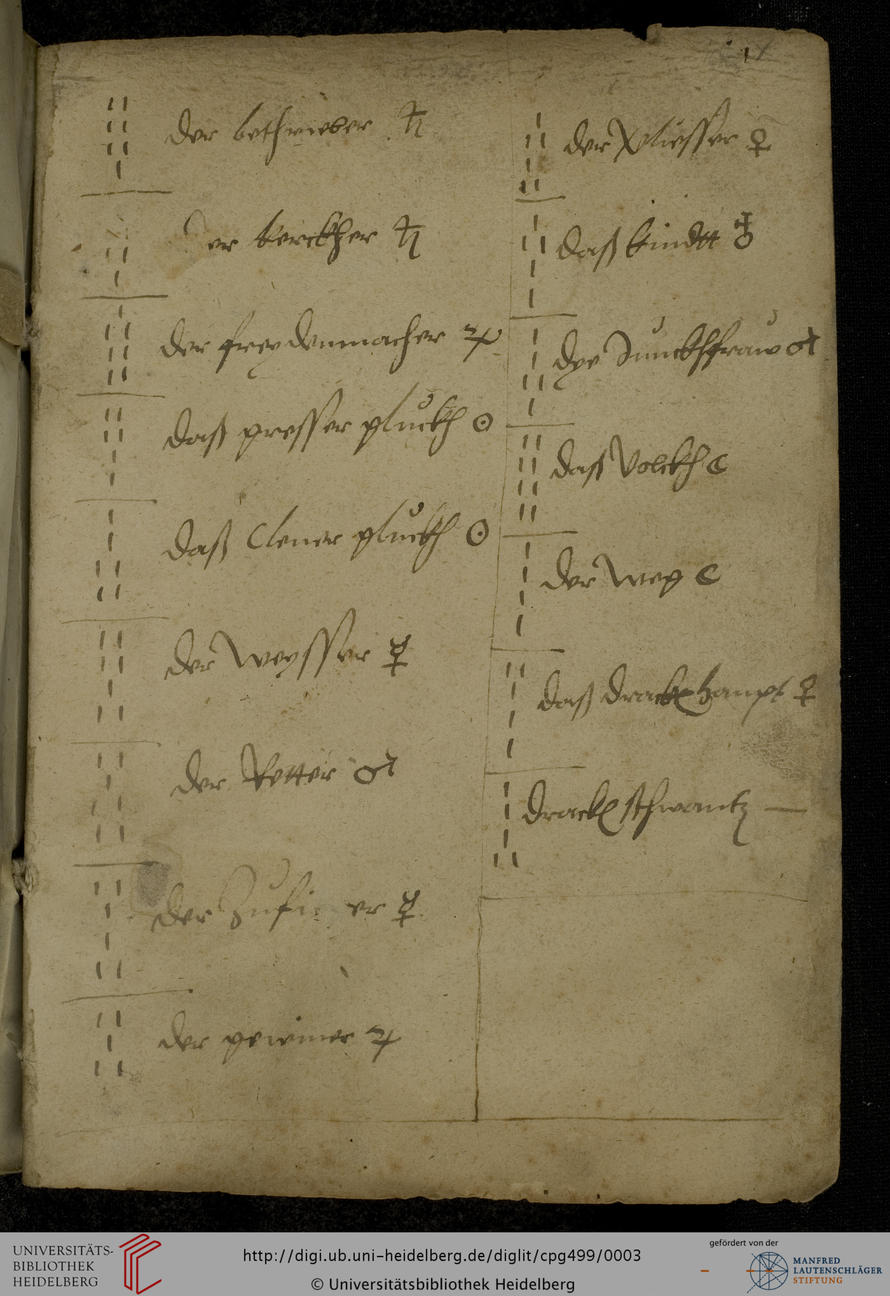 1
der bethrieber ♄
er kerckher ♄
der freydenmacher ♃
daß gresser gluckh ☉
daß Clener gluckh ☉
der Weysser ☿
der Rotter ♂
der er ☿
der gewiner ♃
der ♀
daß kindtt
dye Junckhfrauw ♂
daß Volckh ☾
der Weg ☾
daß drackhhaupt ♀
drackhschwantz —
UNIVERSITÄTS-
BIBLIOTHEK
HEIDELBERG
http://digi.ub.uni-heidelberg.de/diglit/cpg499/0003
© Universitätsbibliothek Heidelberg
gefördert von der
MANFRED
LAUTENSCHLÄGER
STIFTUNG